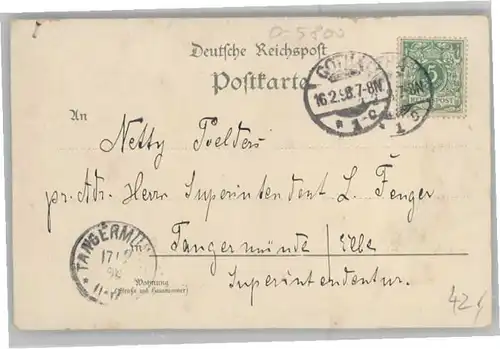 D-5800
Deutsche Reichspost
Postkarte
16.2.98.7-8N.
* 1-c
5
POST
An
Netty
pr. Adr. Herrn Superintendent L. Fenger
in
Tangermünde / Elbe
Superintendentur.
TANGERMÜ
17/2
98
Wohnung
(Straße und Hausnummer)
424